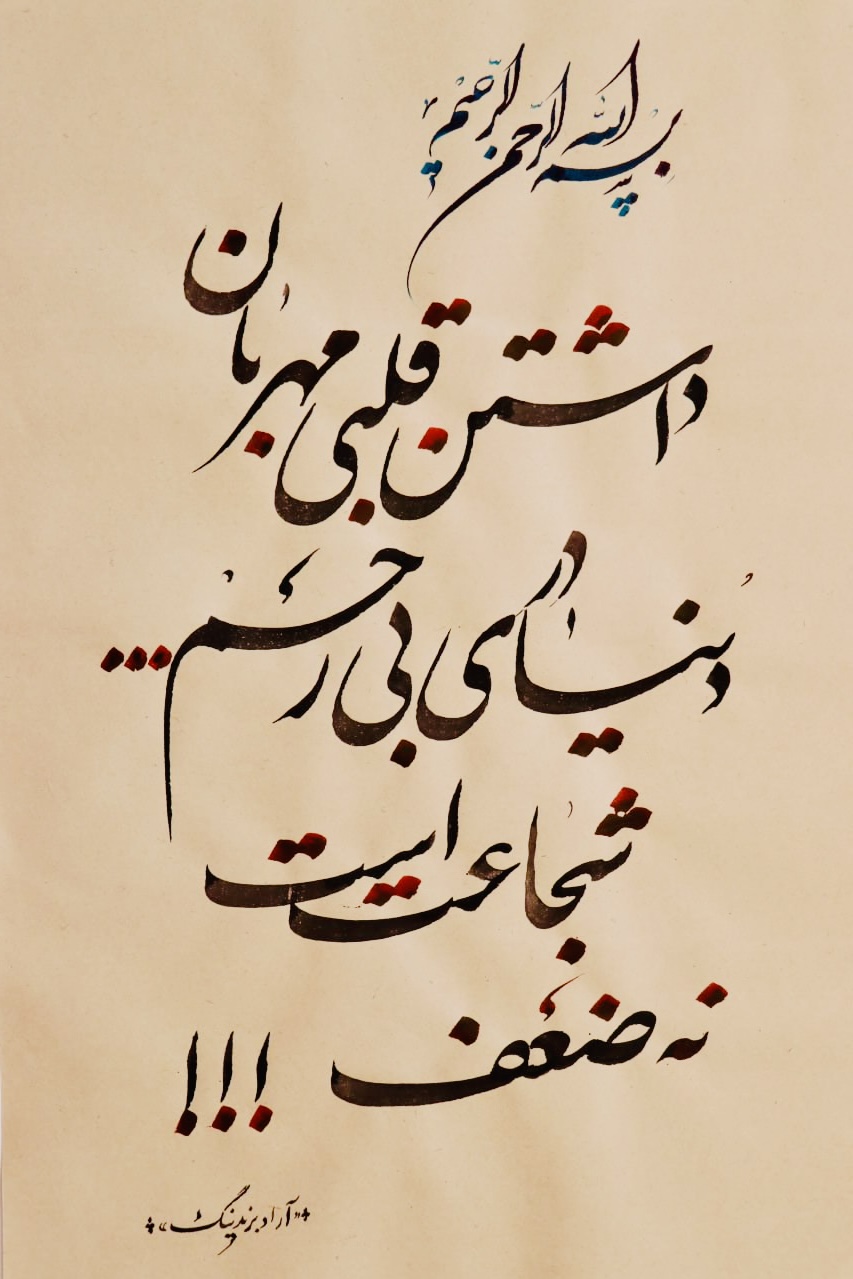 بسم الله الرحمن الرحیم
داشتن قلبی مهربان
در دنیای بی رحم...
شجاعت است
نه ضعف !!!